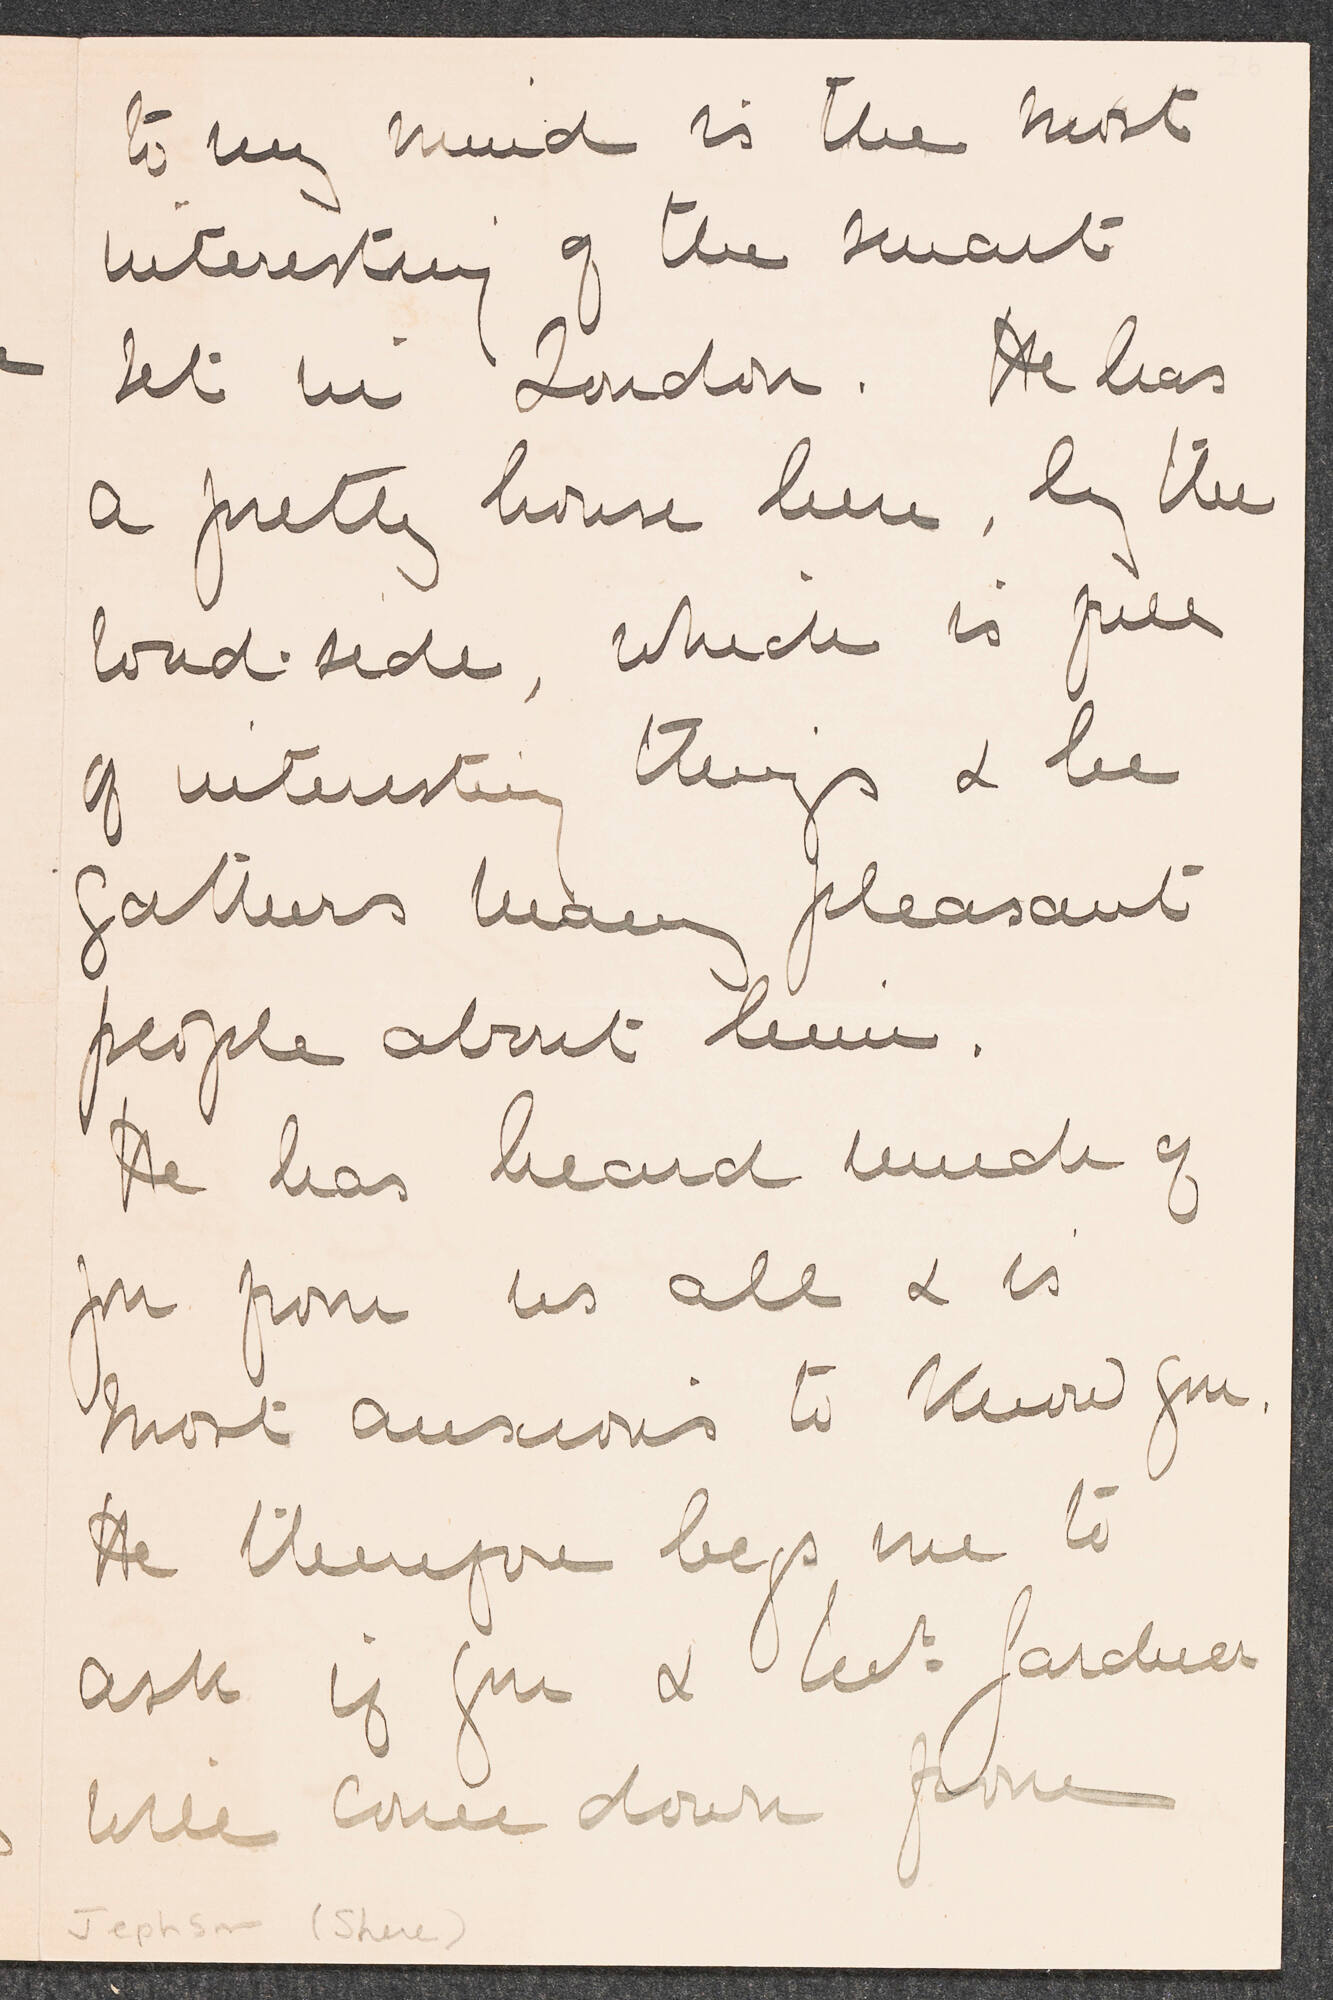 26
to my mind is the most
interesting of the smart
set in London. He has
a pretty house here, by the
road-side, which is full
of interesting things & he
gathers many pleasant
people about him.
He has heard much of
you from us all & is
most anxious to know you.
He therefore begs me to
ask if you & Mr. Gardner
will come down from
Jephson (Shere)